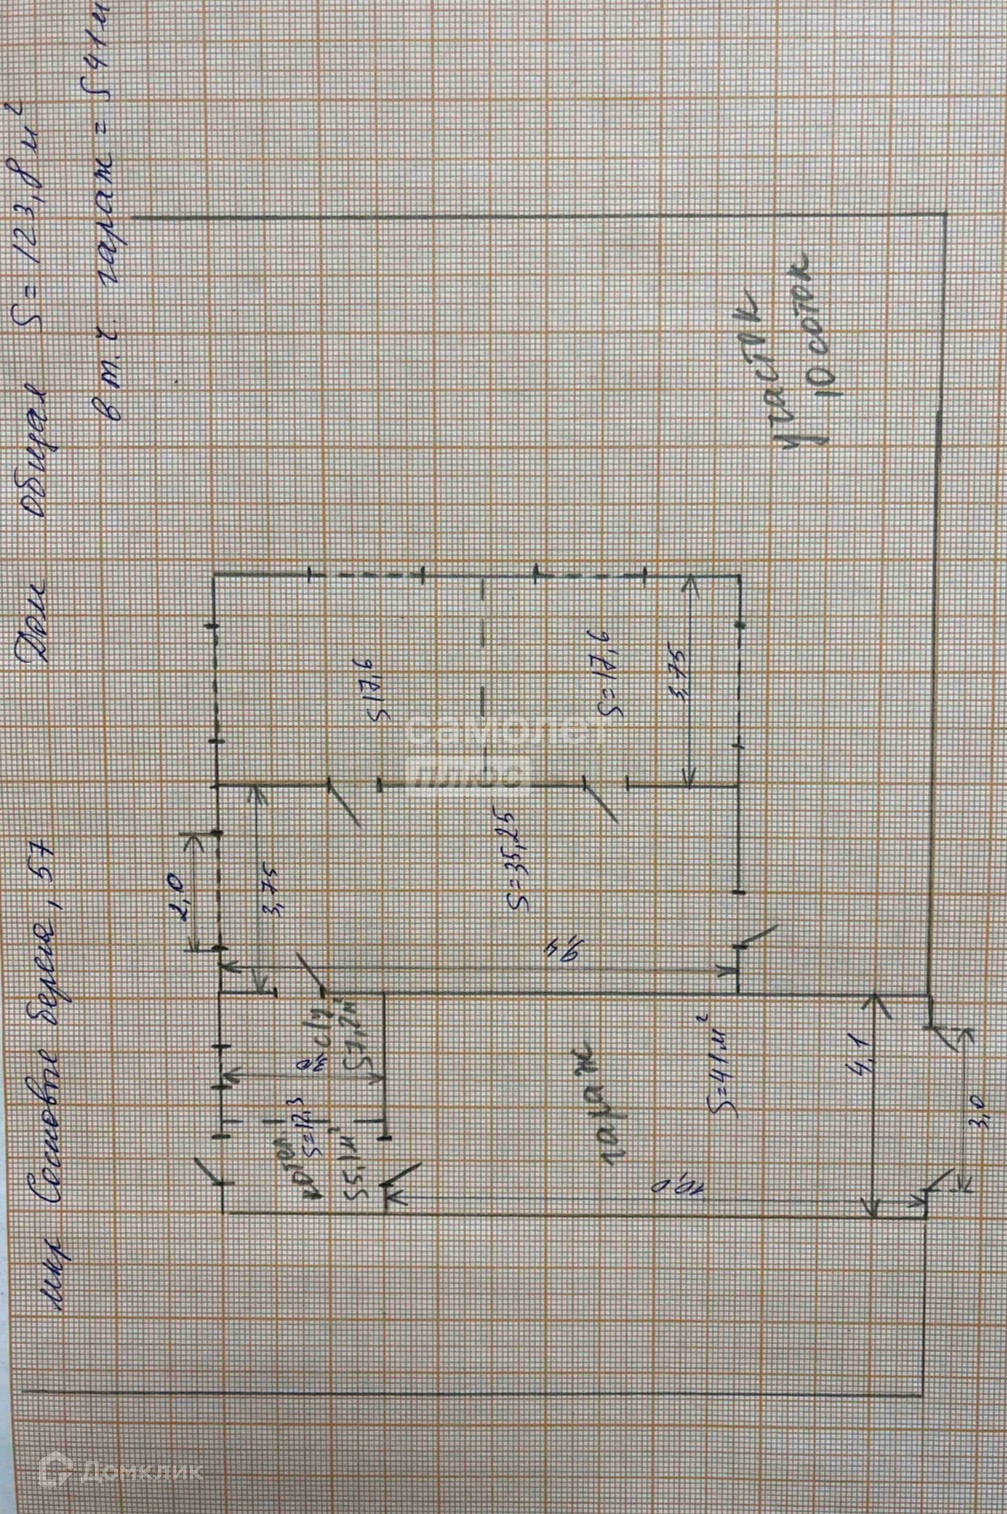 мкр Сосновые берега, 57 Дом общая S = 123,8 м²
в т.ч. гараж = S 41 м
2,0
3,75
S 17,6
S=17,6
3,75
S=35,25
9,4
с/у
S 7,2 м²
котел
S=12,3
S 5,1 м²
гараж
S=41 м²
10,0
4,1
3,0
участок
10 соток
самолет
плюс
Домклик